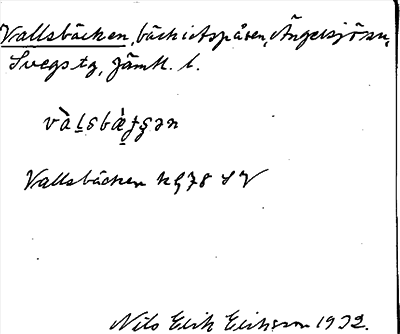 Vallsbäcken, bäck i Aspåsen, Ängersjö sn,
Svegs tg, Jämtl. l.
Vallsbäcken kg 78 SV
Nils Erik Eriksson 1932.